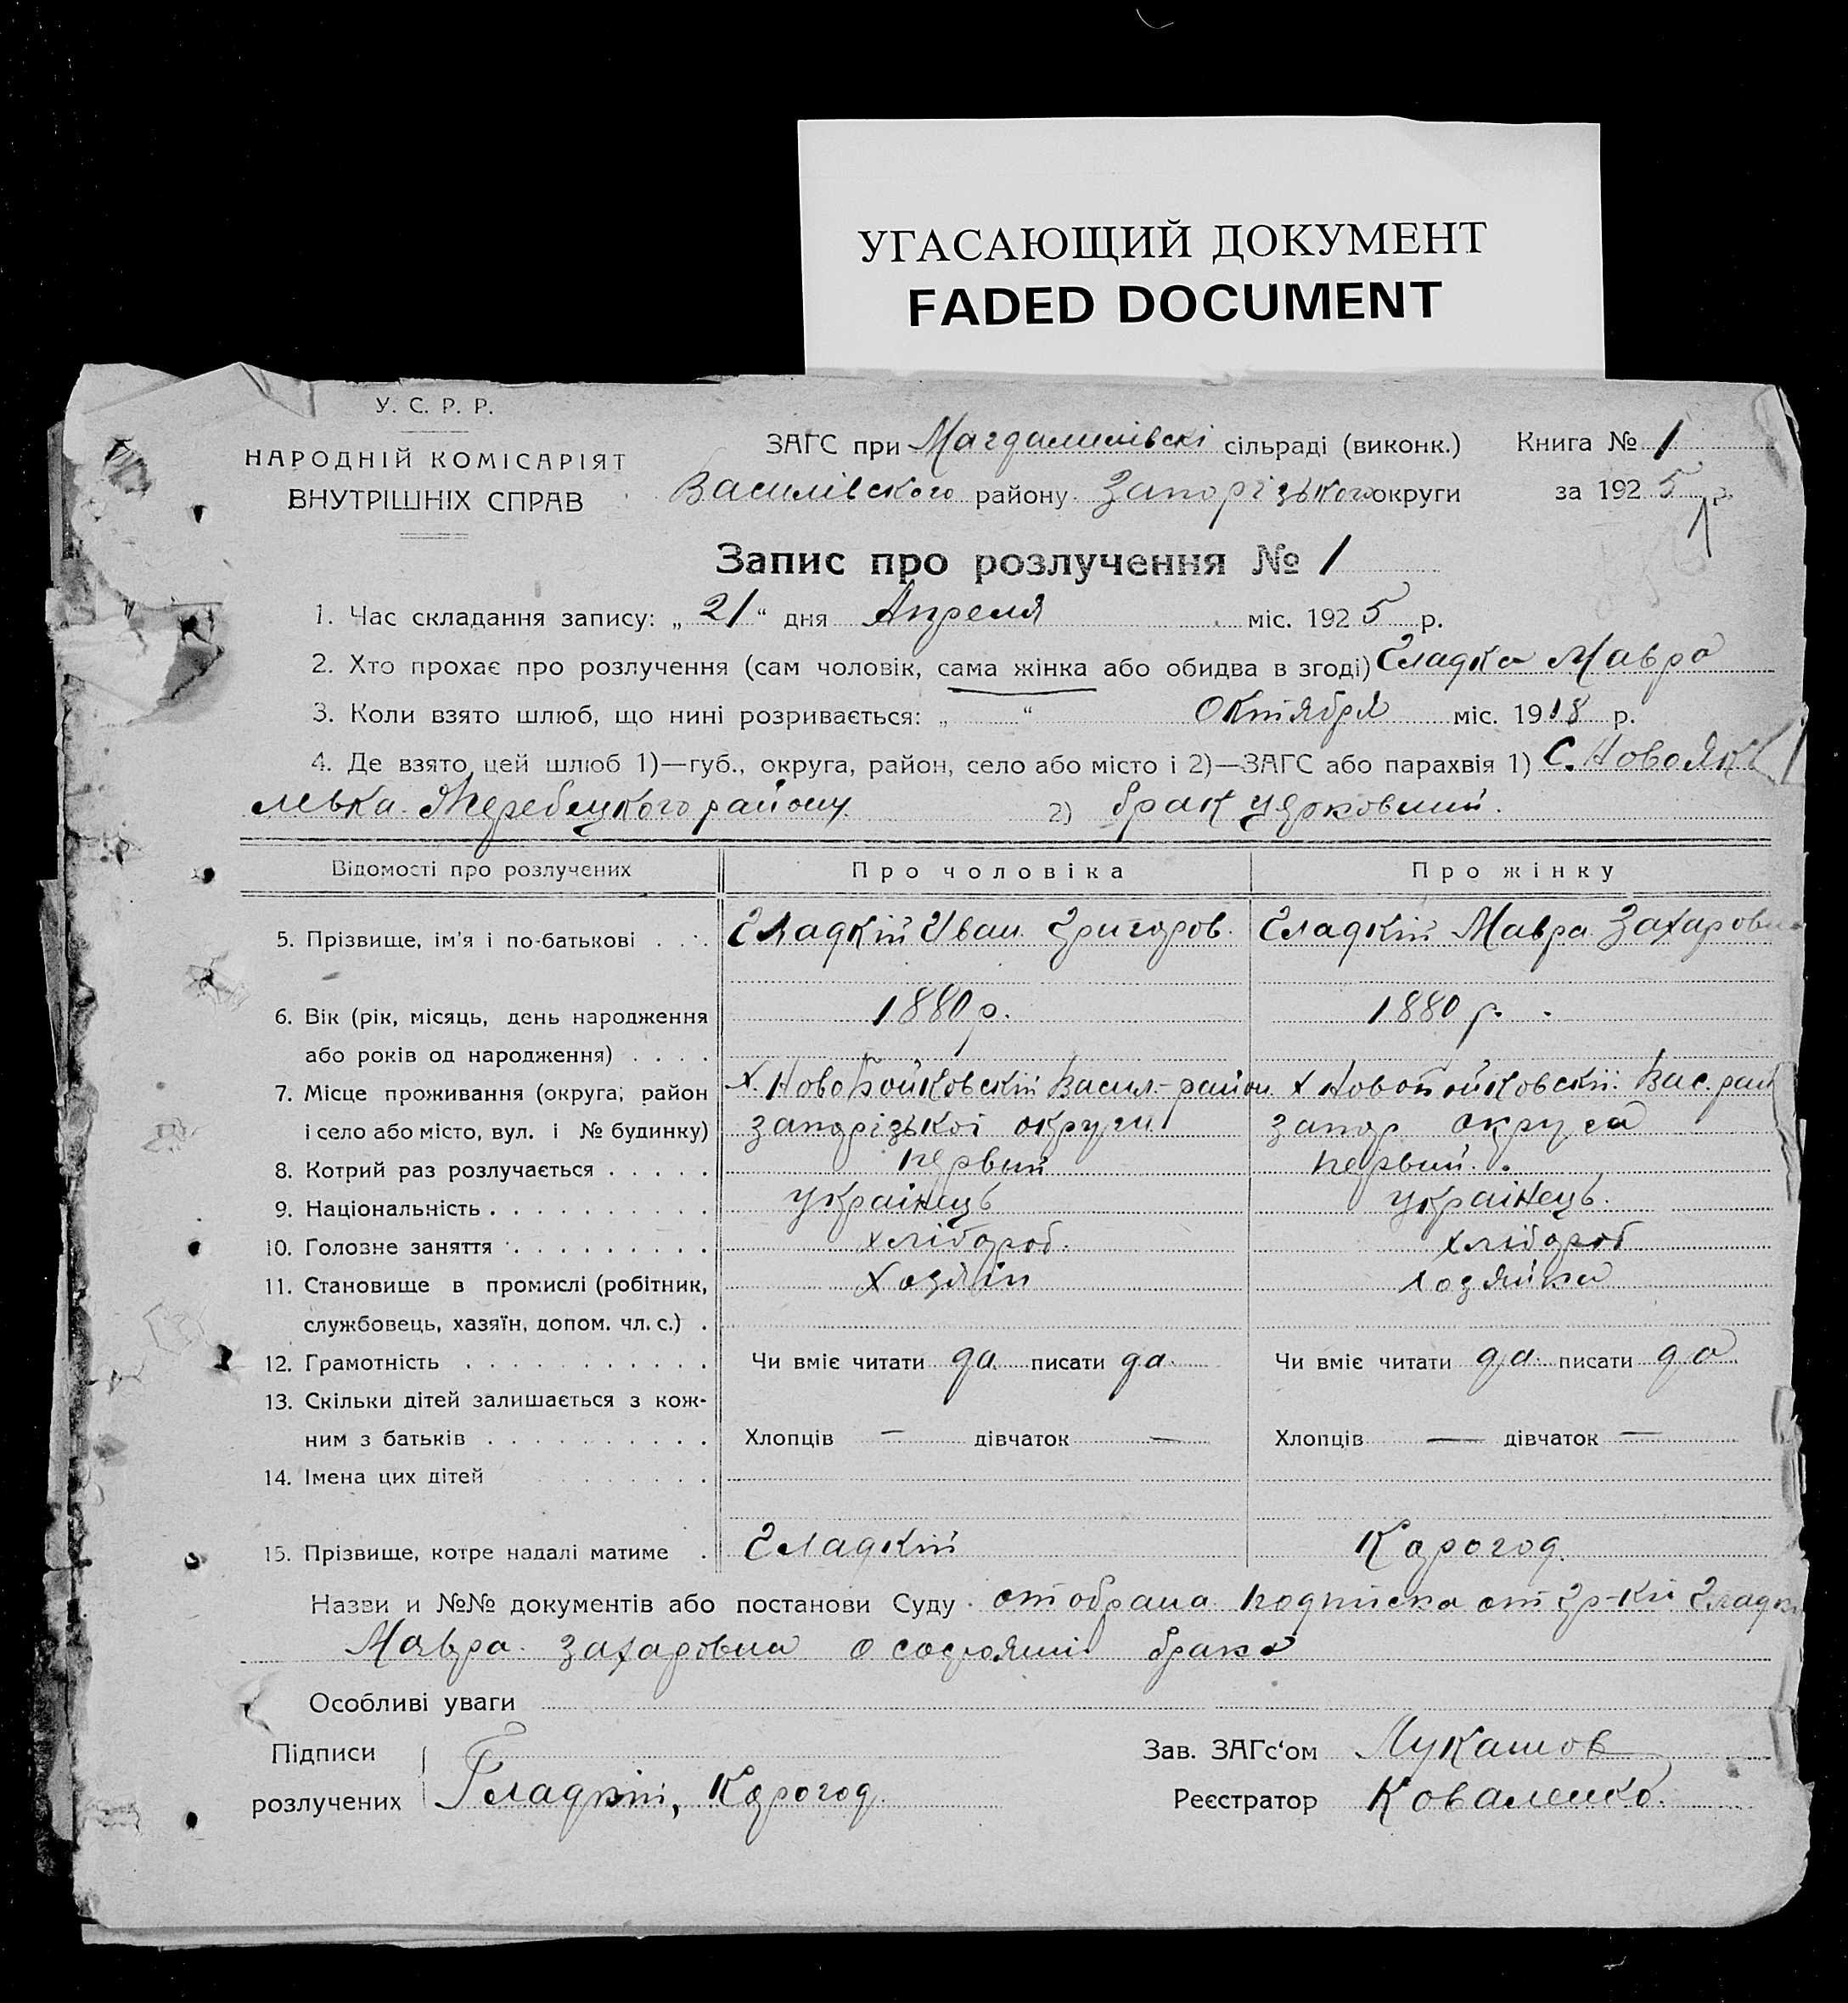 УГАСАЮЩИЙ ДОКУМЕНТ
FADED DOCUMENT
У. С. Р. Р.
НАРОДНІЙ КОМІСАРІЯТ
ВНУТРІШНІХ СПРАВ
ЗАГС при Магдалинівскі сільраді (виконк.) Книга № 1
Василівского району Запорізького округи за 1925 р.
Запис про розлучення № 1
1. Час складання запису: „21“ дня Апреля міс. 1925 р.
2. Хто прохає про розлучення (сам чоловік, сама жінка або обидва в згоді) Гладка Мавра
3. Коли взято шлюб, що нині розривається: „ “ Октября міс. 1918 р.
4. Де взято цей шлюб 1)—губ., округа, район, село або місто і 2)—ЗАГС або парахвія 1) С. Новояков
левка Жеребецкого району. 2) брак церковний.
Відомості про розлучених Про чоловіка Про жінку
5. Прізвище, ім'я і по-батькові Гладкій Иван Григоров. Гладкій Мавра Захаровна
6. Вік (рік, місяць, день народження 1880 р. 1880 р.
або років од народження)
7. Місце проживання (округа, район х. Новобойковскій Васил.-район х Новобойковскій Вас. рай
і село або місто, вул. і № будинку) запорізькоі округи запор округа
8. Котрий раз розлучається первий первий
9. Національність украінець украінець.
10. Головне заняття хлібороб. хлібороб
11. Становище в промислі (робітник, Хозяін хозяйка
службовець, хазяїн, допом. чл. с.)
12. Грамотність Чи вміє читати да писати да Чи вміє читати да писати да
13. Скільки дітей залишається з кож-
ним з батьків Хлопців — дівчаток — Хлопців — дівчаток —
14. Імена цих дітей
15. Прізвище, котре надалі матиме Гладкій Карогод.
Назви и №№ документів або постанови Суду отобрана подписка от гр-ки Гладкі
Мавра Захаровна о состояніі брака
Особливі уваги
Підписи Зав. ЗАГс‘ом Лукашов
розлучених Гладкій, Карогод. Реєстратор Коваленко.